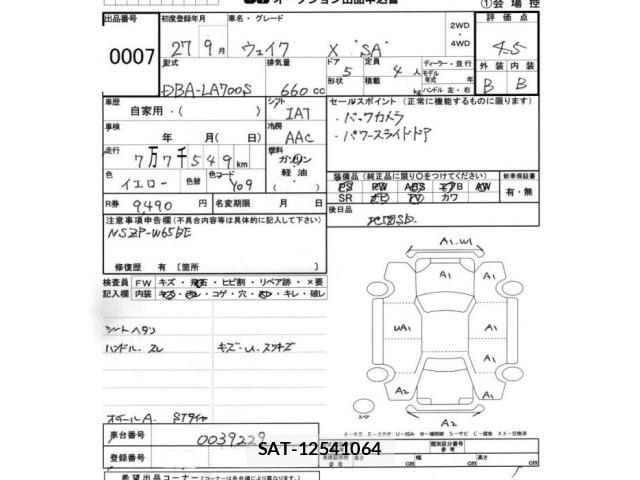 オークション出品申込書
①会場控
出品番号 0007
初度登録年月 27年9月
車名・グレード ウェイク X "SA"
2WD ・ 4WD
評価点 4.5
型式 DBA-LA700S
排気量 660 cc
ドア 5 形状
定員 4人 積載 kg
ディーラー・並行
モデル年式 年
ハンドル 左・右
外装 B 内装 B
車歴 自家用・( )
シフト IAT
セールスポイント (正常に機能するものに限ります)
・バックカメラ
・パワースライドドア
車検 年 月( 日)
冷房 AAC
走行 7万7千549km
燃料 ガソリン 軽油 ( )
色 イエロー 色替 色コード Y09
装備品 (純正品に限り〇をつけてください)
PS PW ABS エアB AW
SR ナビ TV カワ
新車保証書 有・無
R券 9,490 円
名変期限 月 日
後日品
注意事項申告欄(不具合内容等は具体的に記入して下さい)
NSZP-W65DE
修復歴 有 〔箇所 〕
検査員記入欄
FW キズ・飛石・ヒビ割・リペア跡・×要
内装 キズ・汚レ・コゲ・穴・スレ・キレ・破レ
シートヘタリ
ハンドル スレ
キズ・U.スリキズ
ホイールA. STタイヤ
A1.W1
A1
A1
UA1
A1
A1
A2
A2
A2
スペア
A-キズ E-エクボ U-凹み W-補修跡 S-サビ C-腐食 XX-交換済
車台番号 0039229
登録番号
類別区分番号 参考
車庫証明用 参考 長さ cm 幅 cm 高さ cm
SAT-12541064
希望出品コーナー